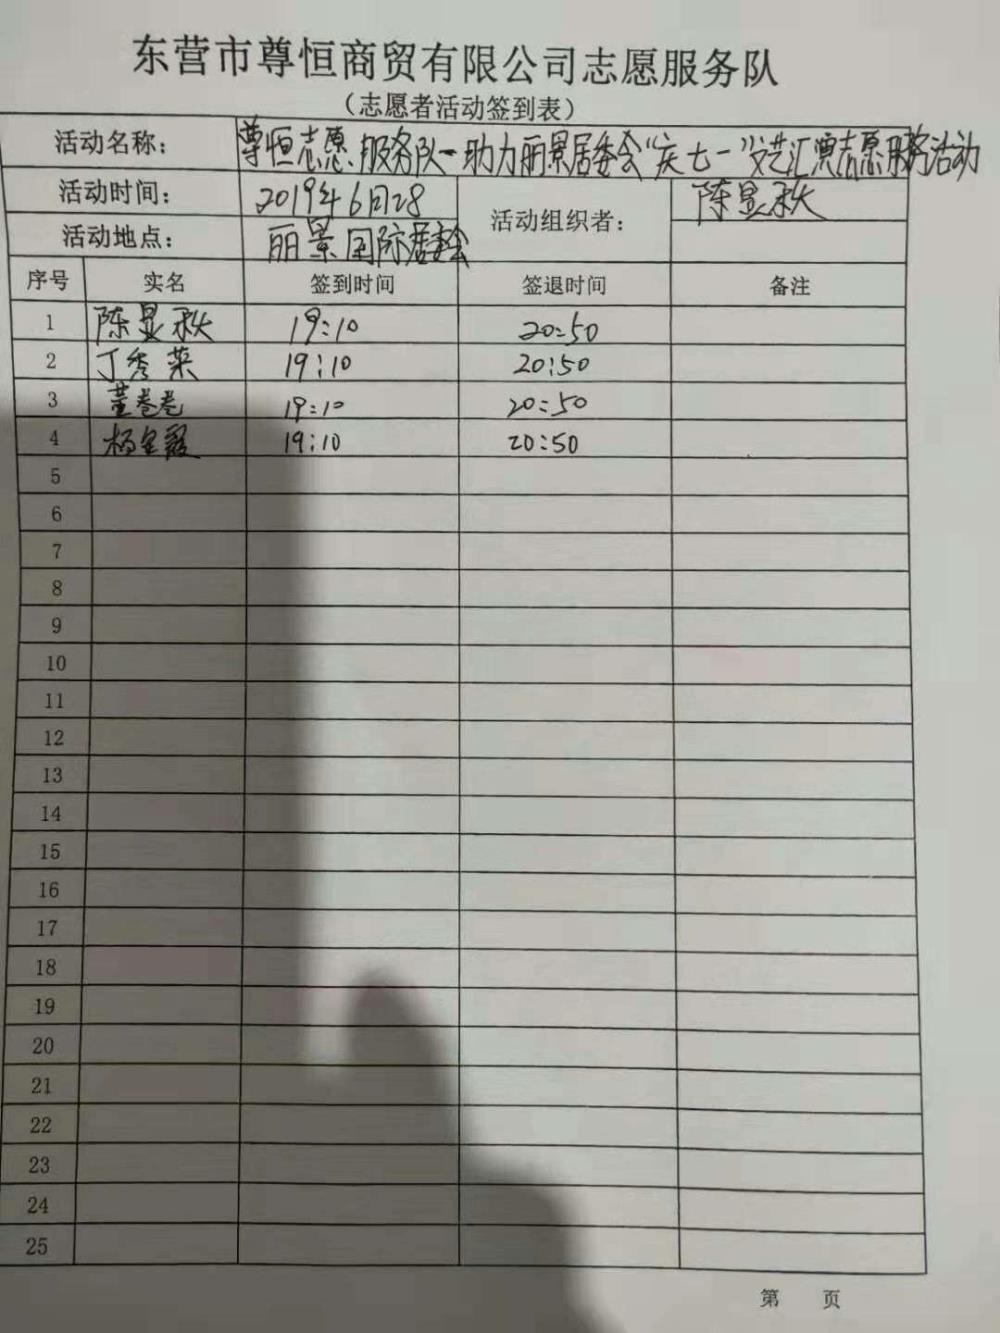 东营市尊恒商贸有限公司志愿服务队
（志愿者活动签到表）
活动名称： 尊恒志愿服务队-助力丽景居委会“庆七一”文艺汇演志愿服务活动
活动时间： 2019年6月28 活动组织者： 陈显秋
活动地点： 丽景国际居委会
序号 实名 签到时间 签退时间 备注
1 陈显秋 19:10 20:50
2 丁秀荣 19:10 20:50
3 董卷卷 19:10 20:50
4 杨金霞 19:10 20:50
5
6
7
8
9
10
11
12
13
14
15
16
17
18
19
20
21
22
23
24
25
第 页